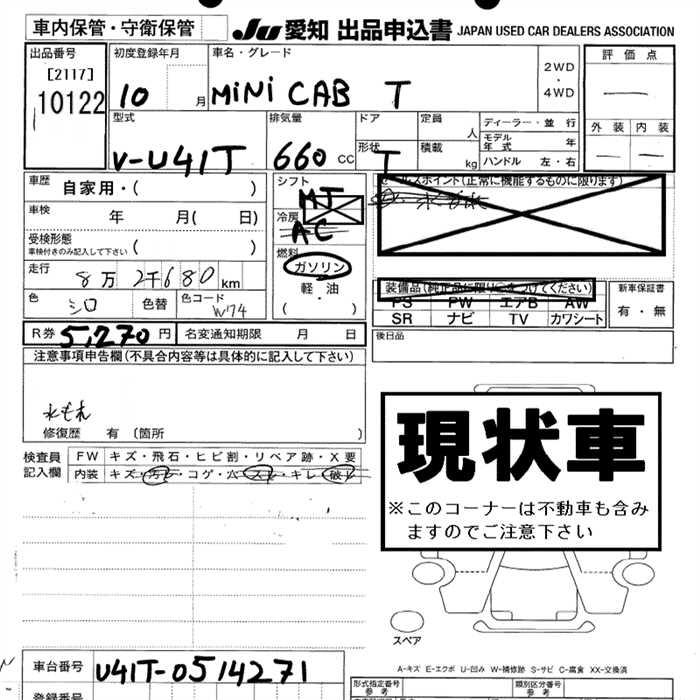 車内保管・守衛保管
JU 愛知 出品申込書 JAPAN USED CAR DEALERS ASSOCIATION
出品番号
[2117]
10122
初度登録年月
10 月
車名・グレード
MINI CAB T
2WD
・
4WD
評価点
—
外装 内装
— —
型式
V-U41T
排気量
660 CC
ドア
形状
T
定員
人
積載
kg
ディーラー・並行
モデル年式 年
ハンドル 左・右
車歴
自家用・( )
車検
年 月( 日)
受検形態
車検付きのみ記入して下さい
( )
走行
8万2千680km
色
シロ
色替
色コード
W74
シフト
MT
冷房
AC
燃料
ガソリン
・
軽・油
( ・ )
セールスポイント(正常に機能するものに限ります)
装備品(純正品に限り○をつけてください)
PS PW エアB AW
SR ナビ TV カワシート
新車保証書
有・無
後日品
R券 5,270円
名変通知期限 月 日
注意事項申告欄(不具合内容等は具体的に記入して下さい)
水もれ
修復歴 有 (箇所 )
現状車
※このコーナーは不動車も含み
ますのでご注意下さい
検査員
記入欄
FW キズ・飛石・ヒビ割・リペア跡・X要
内装 キズ・汚れ・コゲ・ハ スレ・キレ・破レ
スペア
A-キズ E-エクボ U-凹み W-補修跡 S-サビ C-腐食 XX-交換済
車台番号
U41T-0514271
登録番号
形式指定番号
参考
類別区分番号
参考